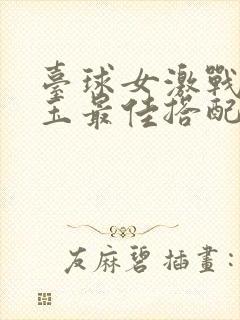 臺球女激戰
玉最佳搭配
友麻碧 插畫：